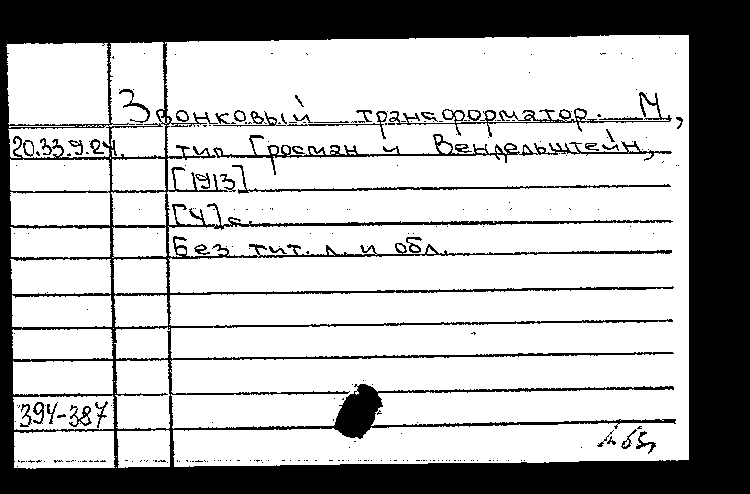 Звонковый трансформатор. М.,
20.33.9.24. тип Гросман и Вендельштейн,
[1913]
[4] с.
Без тит. л. и обл.
394-387